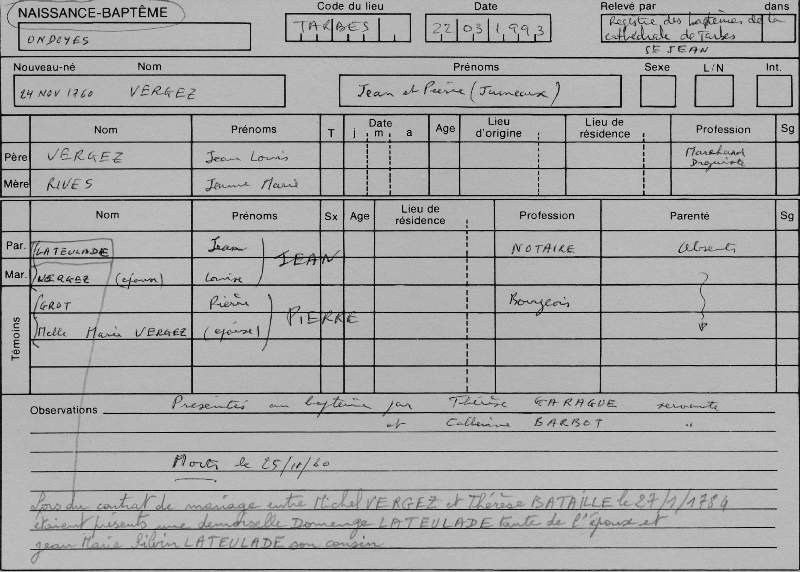 NAISSANCE-BAPTÊME
ONDOYES
Code du lieu
TARBES
Date
22 03 1993
Relevé par dans
Registre des baptêmes de la
cathédrale de Tarbes
SE JEAN
Nouveau-né Nom Prénoms Sexe L/N Int.
24 NOV 1760 VERGEZ Jean et Pierre (Jumeaux)
Nom Prénoms T j Date m a Age Lieu d'origine Lieu de résidence Profession Sg
Père VERGEZ Jean Louis Marchand
Droguiste
Mère RIVES Jeanne Marie
Nom Prénoms Sx Age Lieu de résidence Profession Parenté Sg
Par. LATEULADE Jean JEAN NOTAIRE Absents
Mar. VERGEZ (épouse) Louise
Témoins
GROT Pierre PIERRE Bourgeois
Melle Marie VERGEZ (épouse)
Observations Présentés au baptême par Thérèse GARAGUE servante
et Catherine BARBOT "
Morts le 25/11/60
Lors du contrat de mariage entre Michel VERGEZ et Thérèse BATAILLE le 27/1/1784
étaient présents une demoiselle Domenge LATEULADE tante de l'époux et
jean Marie Silvin LATEULADE son cousin